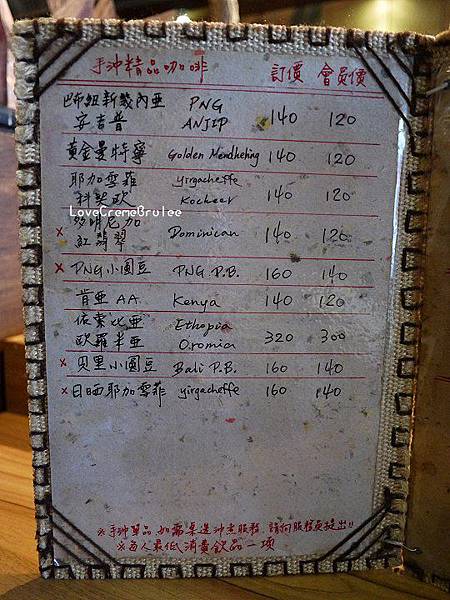 手沖精品咖啡 訂價 會員價
巴布紐新幾內亞 PNG
安吉普 ANJIP 140 120
黃金曼特寧 Golden Mandheling 140 120
耶加雪菲 yirgacheffe
科契欧 Kocheer 140 120
LoveCremeBrulee
多明尼加
x 紅翡翠 Dominican 140 120
x PNG小圓豆 PNG P.B. 160 140
肯亞 AA Kenya 140 120
依索比亞 Ethopia
歐羅米亞 Oromia 320 300
x 貝里小圓豆 Bali P.B. 160 140
x 日晒耶加雪菲 yirgacheffe 160 140
※手沖單品,如需桌邊沖煮服務,請向服務員提出!!
※每人最低消費飲品一項